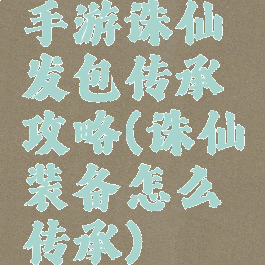 手游诛仙
发包传承
攻略(诛仙
装备怎么
传承)